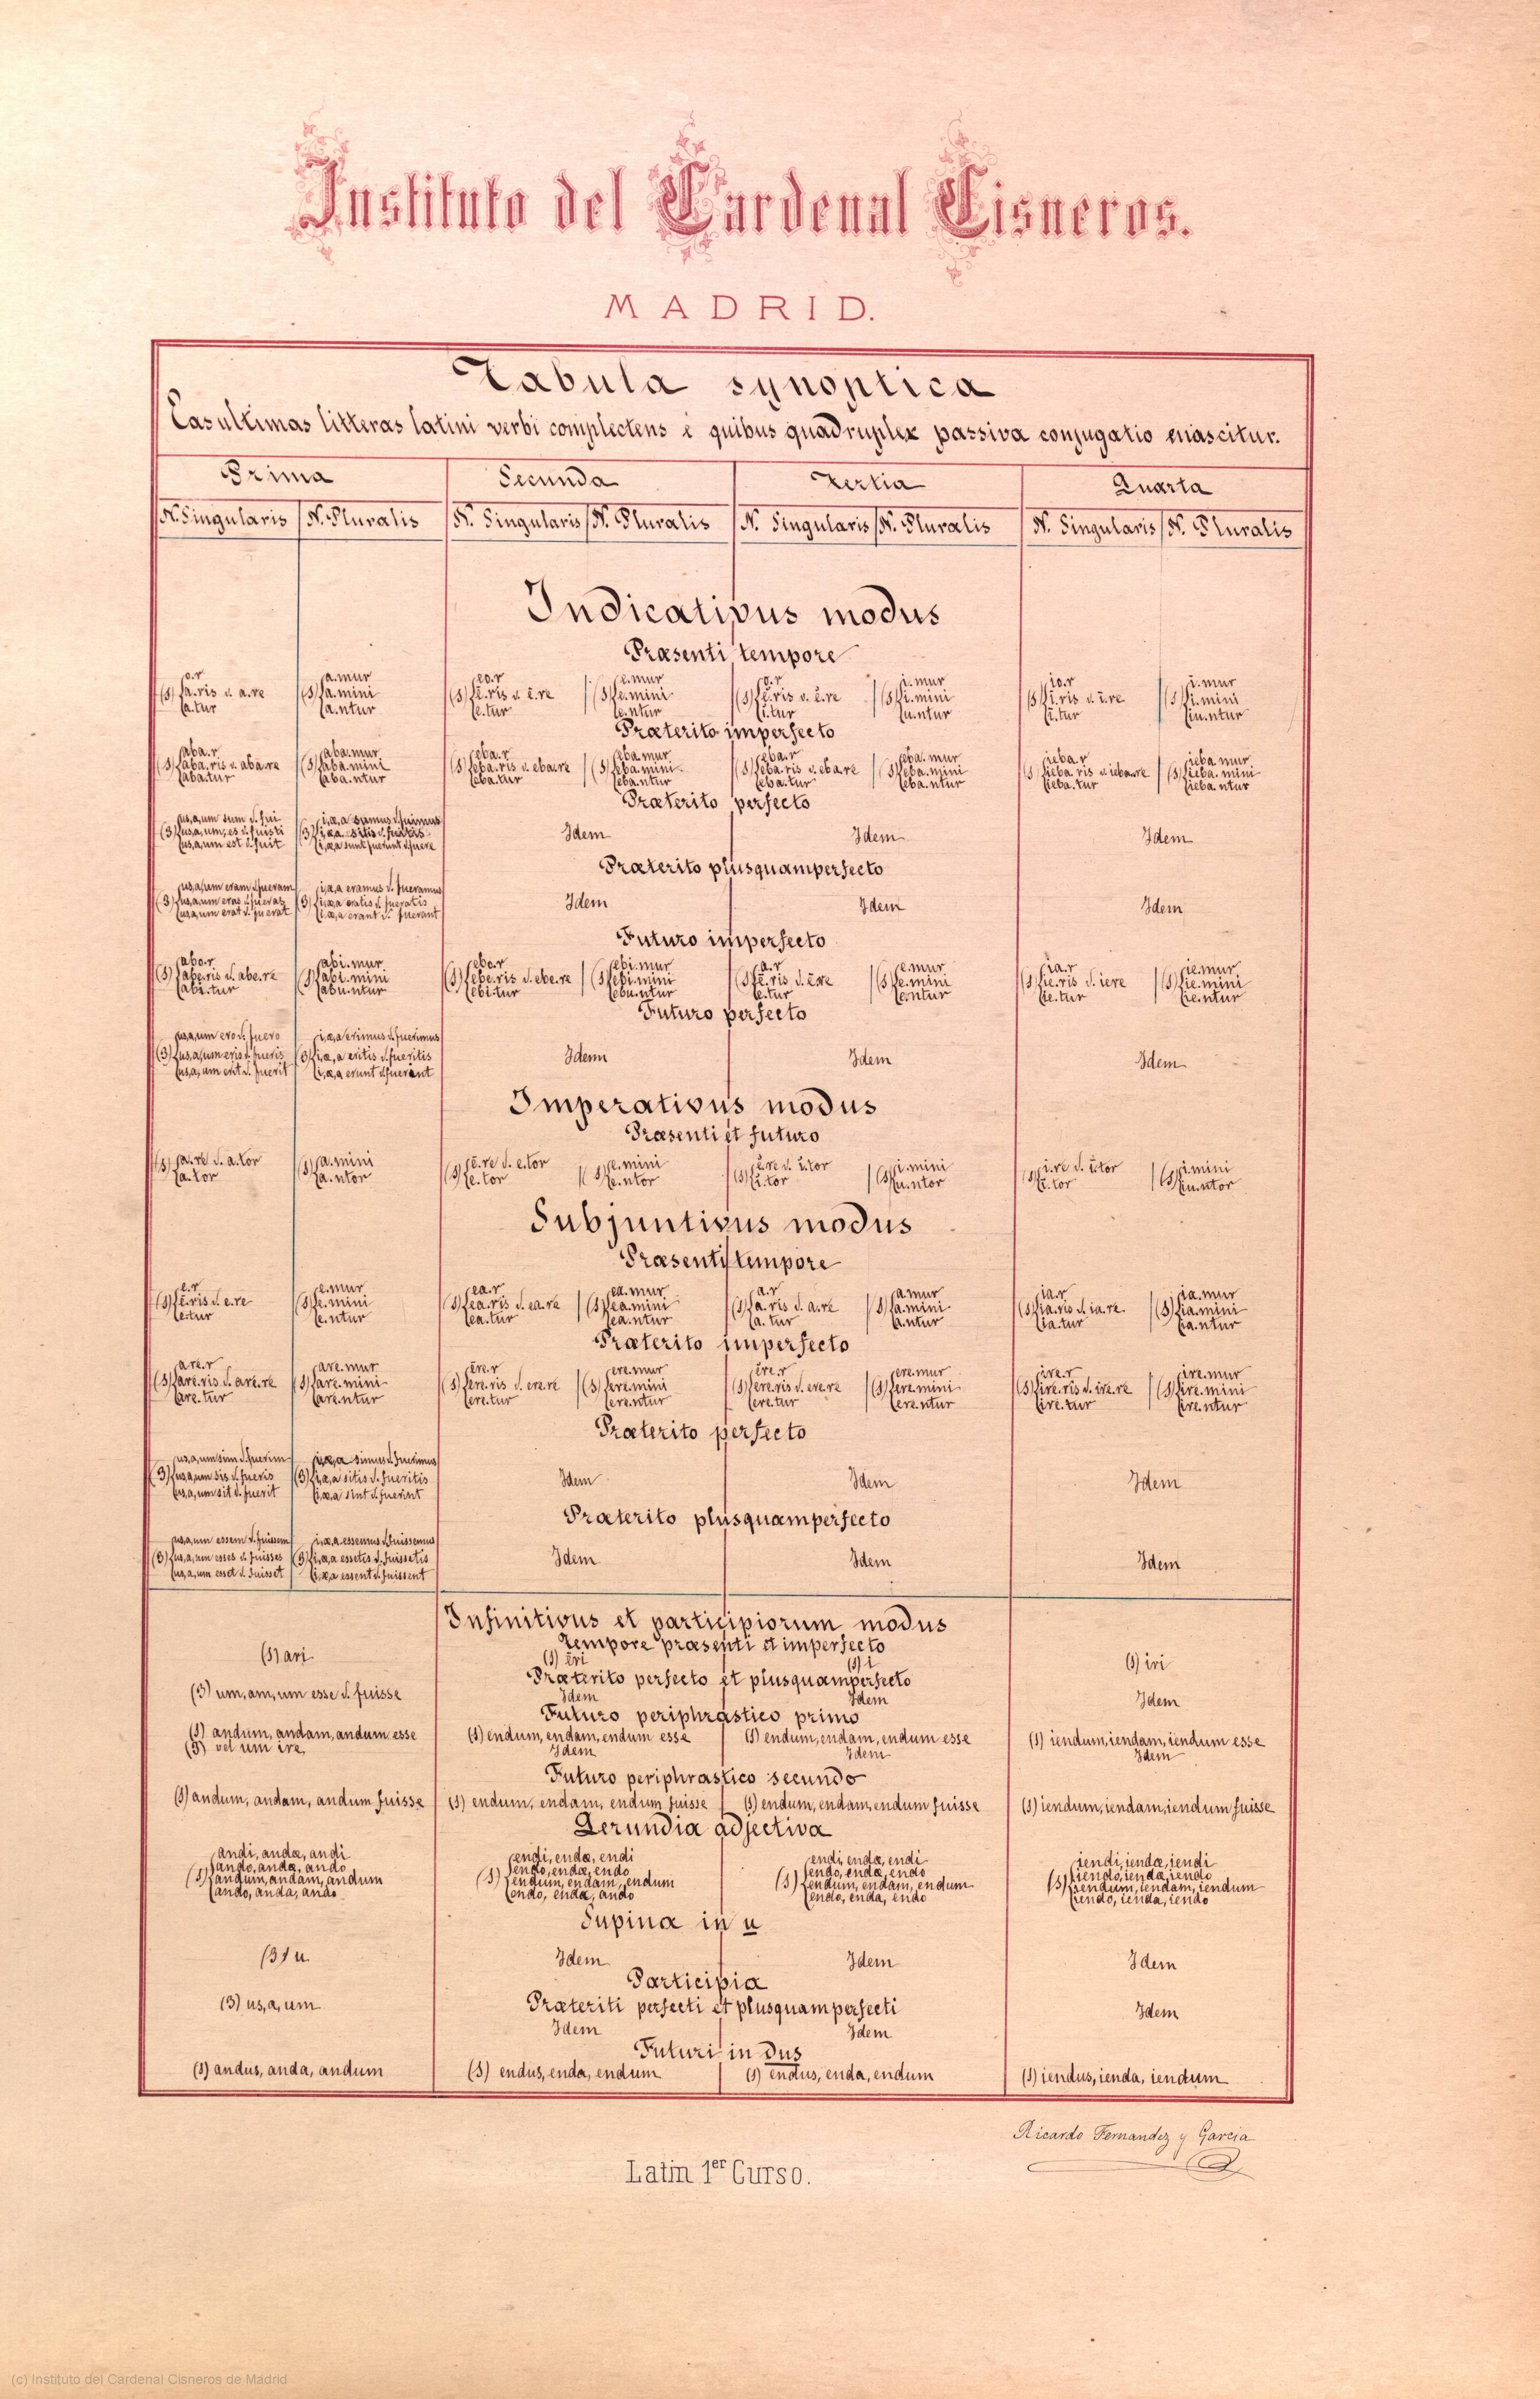 Instituto del Cardenal Cisneros.
MADRID.
Tabula synoptica
Eas ultimas litteras latini verbi complectens é quibus quadruplex passiva conjugatio enascitur.
Prima Secunda Tertia Quarta
N. Singularis N. Pluralis N. Singularis N. Pluralis N. Singularis N. Pluralis N. Singularis N. Pluralis
Indicativus modus
Præsenti tempore
o.r a.mur eo.r e.mur o.r i.mur io.r i.mur
(1) a.ris v. a.re (1) a.mini (1) ē.ris v. ē.re (1) e.mini (1) ĕ.ris v. ĕ.re (1) i.mini (1) i.ris v. i.re (1) i.mini
a.tur a.ntur e.tur e.ntur i.tur u.ntur i.tur iu.ntur
Præterito imperfecto
aba.r aba.mur eba.r eba.mur eba.r eba.mur ieba.r ieba.mur
(1) aba.ris v. aba.re (1) aba.mini (1) eba.ris v. eba.re (1) eba.mini (1) eba.ris v. eba.re (1) eba.mini (1) ieba.ris v. ieba.re (1) ieba.mini
aba.tur aba.ntur eba.tur eba.ntur eba.tur eba.ntur ieba.tur ieba.ntur
Præterito perfecto
us,a,um sum v. fui i,æ,a sumus v. fuimus
(3) us,a,um, es v. fuisti (3) i,æ,a sitis v. fuistis Idem Idem Idem
us,a,um est v. fuit i,æ,a sunt fuerunt v. fuere
Præterito plusquamperfecto
us,a,um eram v. fueram i,æ,a eramus v. fueramus
(3) us,a,um eras v. fueras (3) i,æ,a eratis v. fueratis Idem Idem Idem
us,a,um erat v. fuerat i,æ,a erant v. fuerant
Futuro imperfecto
abo.r abi.mur ebo.r ebi.mur a.r e.mur ia.r ie.mur
(1) abe.ris v. abe.re (1) abi.mini (1) ebe.ris v. ebe.re (1) ebi.mini (1) ē.ris v. ē.re (1) e.mini (1) ie.ris v. iere (1) ie.mini
abi.tur abu.ntur ebi.tur ebu.ntur e.tur e.ntur ie.tur ie.ntur
Futuro perfecto
us,a,um ero v. fuero i,æ,a erimus v. fuerimus
(3) us,a,um eris v. fueris (3) i,æ,a eritis v. fueritis Idem Idem Idem
us,a,um erit v. fuerit i,æ,a erunt v. fuerint
Imperativus modus
Præsenti et futuro
(1) a.re v. a.tor (1) a.mini (1) ē.re v. e.tor (1) e.mini (1) ĕ.re v. ĭ.tor (1) i.mini (1) i.re v. i.tor (1) i.mini
a.tor a.ntor e.tor e.ntor i.tor u.ntor i.tor iu.ntor
Subjuntivus modus
Præsenti tempore
e.r e.mur ea.r ea.mur a.r a.mur ia.r ia.mur
(1) ē.ris v. e.re (1) e.mini (1) ea.ris v. ea.re (1) ea.mini (1) a.ris v. a.re (1) a.mini (1) ia.ris v. ia.re. (1) ia.mini
e.tur e.ntur ea.tur ea.ntur a.tur a.ntur ia.tur ia.ntur
Præterito imperfecto
are.r are.mur ēre.r ere.mur ĕre.r ere.mur ire.r ire.mur
(1) are.ris v. are.re (1) are.mini (1) ere.ris v. ere.re (1) ere.mini (1) ere.ris v. ere.re (1) ere.mini (1) ire.ris v. ire.re (1) ire.mini
are.tur are.ntur ere.tur ere.ntur ere.tur ere.ntur ire.tur ire.ntur
Præterito perfecto
us,a,um sim v. fuerim i,æ,a simus v. fuerimus
(3) us,a,um sis v. fueris (3) i,æ,a sitis v. fueritis Idem Idem Idem
us,a,um sit v. fuerit i,æ,a sint v. fuerint
Præterito plusquamperfecto
us,a,um essem v. fuissem i,æ,a essemus v. fuissemus
(3) us,a,um esses v. fuisses (3) i,æ,a essetis v. fuissetis Idem Idem Idem
us,a,um esset v. fuisset i,æ,a essent v. fuissent
Infinitivus et participiorum modus
Tempore præsenti et imperfecto
(1) ari (1) ēri (1) i (1) iri
Præterito perfecto et plusquamperfecto
(3) um, am, um esse v. fuisse Idem Idem Idem
Futuro periphrastico primo
(1) andum, andam, andum esse (1) endum, endam, endum esse (1) endum, endam, endum esse (1) iendum, iendam, iendum esse
(3) vel um ire Idem Idem Idem
Futuro periphrastico secundo
(1) andum, andam, andum fuisse (1) endum, endam, endum fuisse (1) endum, endam, endum fuisse (1) iendum, iendam, iendum fuisse
Gerundia adjectiva
andi, andæ, andi endi, endæ, endi endi, endæ, endi iendi, iendæ, iendi
ando, andæ, ando endo, endæ, endo endo, endæ, endo iendo, iendæ, iendo
(1) andum, andam, andum (1) endum, endam, endum (1) endum, endam, endum (1) iendum, iendam, iendum
ando, anda, ando endo, enda, ando endo, enda, endo iendo, ienda, iendo
Supina in u
(3) u Idem Idem Idem
Participia
Præteriti perfecti et plusquamperfecti
(3) us, a, um Idem Idem Idem
Futuri in dus
(1) andus, anda, andum (1) endus, enda, endum (1) endus, enda, endum (1) iendus, ienda, iendum
Ricardo Fernandez y Garcia
Latín 1er Curso.
(c) Instituto del Cardenal Cisneros de Madrid